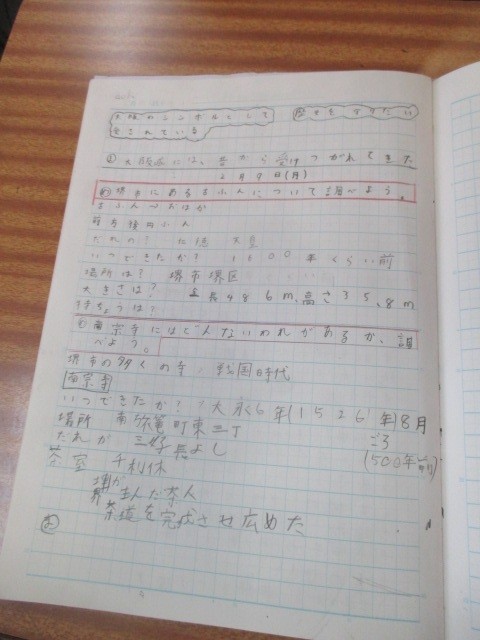 大阪のシンボルとして
愛されている
歴史を守りたい
大阪城には、昔から受けつがれてきた
2月9日(月)
め 堺市にあるこふんについて調べよう。
こふん〜おはか
前方後円ふん
だれの? 仁徳天皇
いつできたか? 1600年くらい前
場所は? 堺市堺区
大きさは? 全長486m、高さ35.8m
特ちょうは?
南宗寺にはどんないわれがあるか、調
べよう。
堺市の多くの寺 戦国時代
南宗寺
いつできたか? 大永6年(1526年)8月
ごろ
(500年前)
場所 南旅篭町東三丁
だれが 三好長よし
茶室 千利休
堺が
生んだ茶人
茶道を完成させ広めた